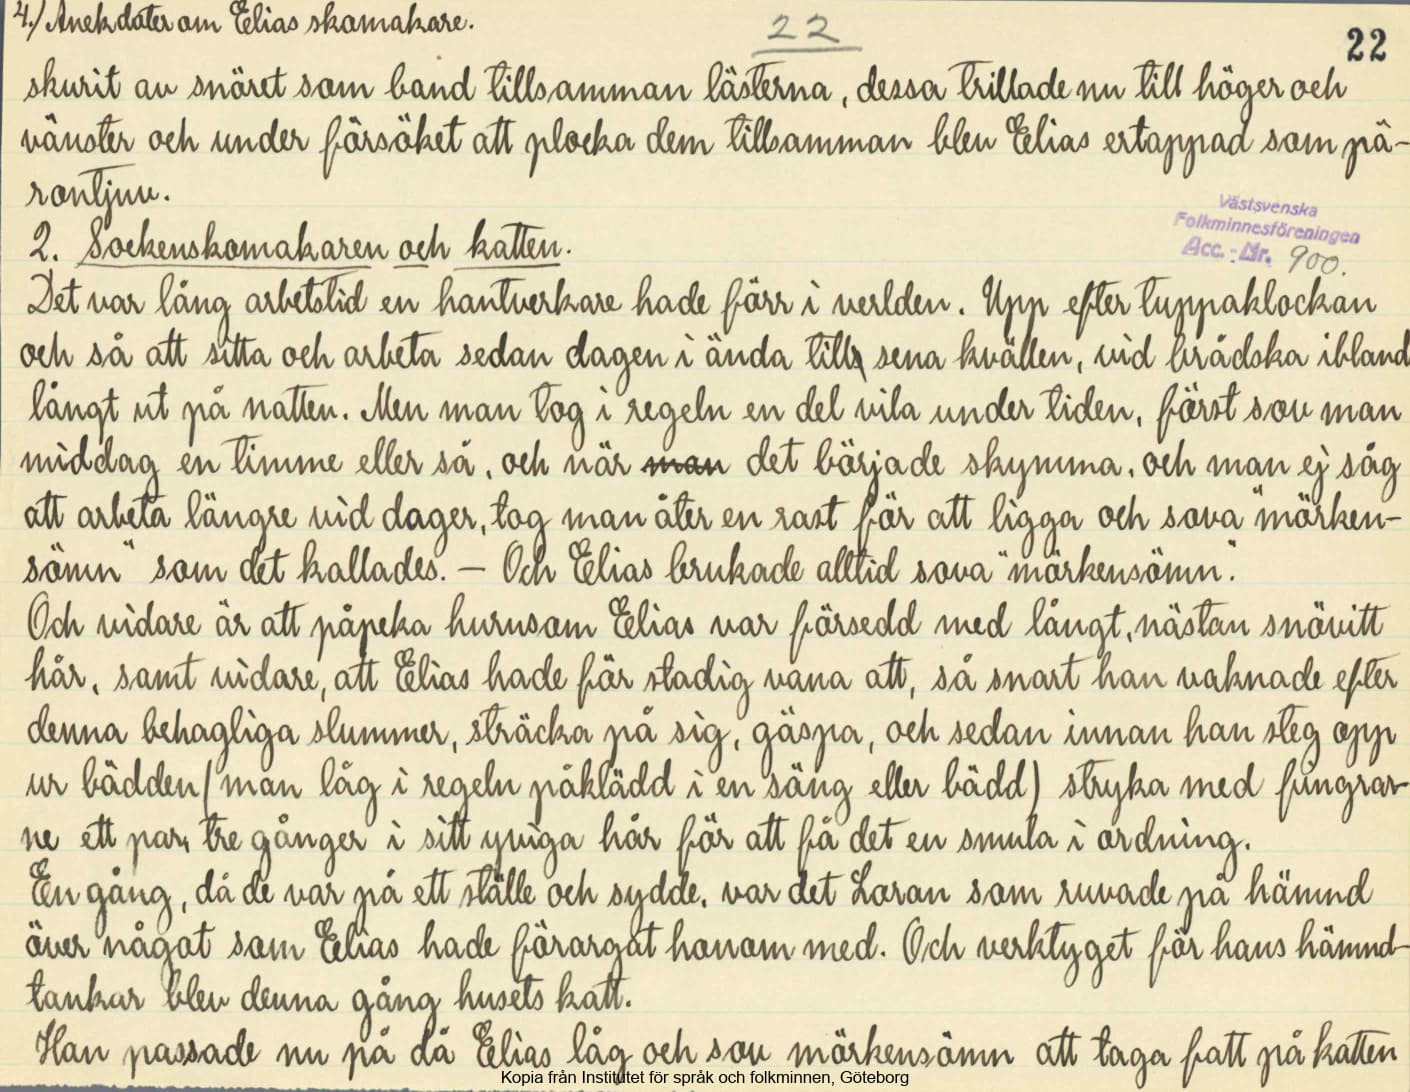 4.) Anekdoter om Elias skomakare.
22
22
skurit av snöret som band tillsamman lästerna, dessa trillade nu till höger och
vänster och under försöket att plocka dem tillsamman blev Elias ertappad som pä-
rontjuv.
Västsvenska
Folkminnesföreningen
Acc.-Nr. 900.
2. Sockenskomakaren och katten.
Det var lång arbetstid en hantverkare hade förr i verlden. Upp efter tuppaklockan
och så att sitta och arbeta sedan dagen i ända till sena kvällen, vid brådska ibland
långt ut på natten. Men man tog i regeln en del vila under tiden, först sov man
middag en timme eller så, och när man det började skymma, och man ej såg
att arbeta längre vid dager, tog man åter en rast för att ligga och sova "mörken-
sömn" som det kallades. — Och Elias brukade alltid sova "mörkensömn".
Och vidare är att påpeka hurusom Elias var försedd med långt, nästan snövitt
hår, samt vidare, att Elias hade för stadig vana att, så snart han vaknade efter
denna behagliga slummer, sträcka på sig, gäspa, och sedan innan han steg opp
ur bädden (man låg i regeln påklädd i en säng eller bädd) stryka med fingrar-
ne ett par, tre gånger i sitt yviga hår för att få det en smula i ordning.
En gång, då de var på ett ställe och sydde, var det Laran som ruvade på hämnd
över något som Elias hade förargat honom med. Och verktyget för hans hämnd-
tankar blev denna gång husets katt.
Han passade nu på då Elias låg och sov mörkensömn att taga fatt på katten
Kopia från Institutet för språk och folkminnen, Göteborg